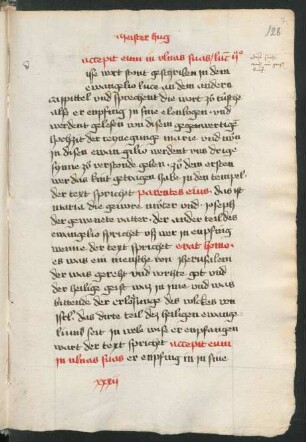 meister hug
128
accepit eum in vlnas suas luc ijo
ise wort stont geschriben in dem
ewangelio luce an dem andern
cappittel vnd sprechent die wort zů tüsche
also er enpfing in sine elenbogen vnd
werdent gelesen von disem gegenwertigen
hochzit der
in disen ewangelio werdent vns drige
synne zů verstonde geben zů dem ersten
wer das kint getragen habe in den tempel
der text sprichet parentes eius das ist
maria die gewore můter vnd joseph
der gewonete vatter der ander teil des
ewangelio sprichet ob wer in enpfing
wenne der text sprichet erat homo
es was ein mensche von jherusalem
der was gereht vnd vorhte got vnd
der heilige geist waz in ime vnd was
bittende der erlösunge des volckes von
isrl das dirte teil des heiligen ewange
liums seit in wele wise er enpfangen
wart der text sprichet accepit eum
in vlnas suas er enpfing in in sine
xxxij